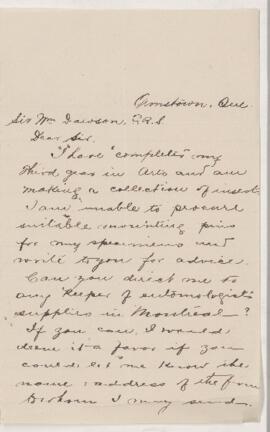 Ormstown, Que
Sir Wm Dawson, F.R.S.
Dear Sir.
I have completed my
third year in Arts and am
making a collection of insects.
I am unable to procure
suitable mounting pins
for my specimens and
write to you for advice.
Can you direct me to
any keeper of entomologist
supplies in Montreal?
If you can, I would
deem it a favor if you
could let me know the
name & address of the firm
to whom I may send